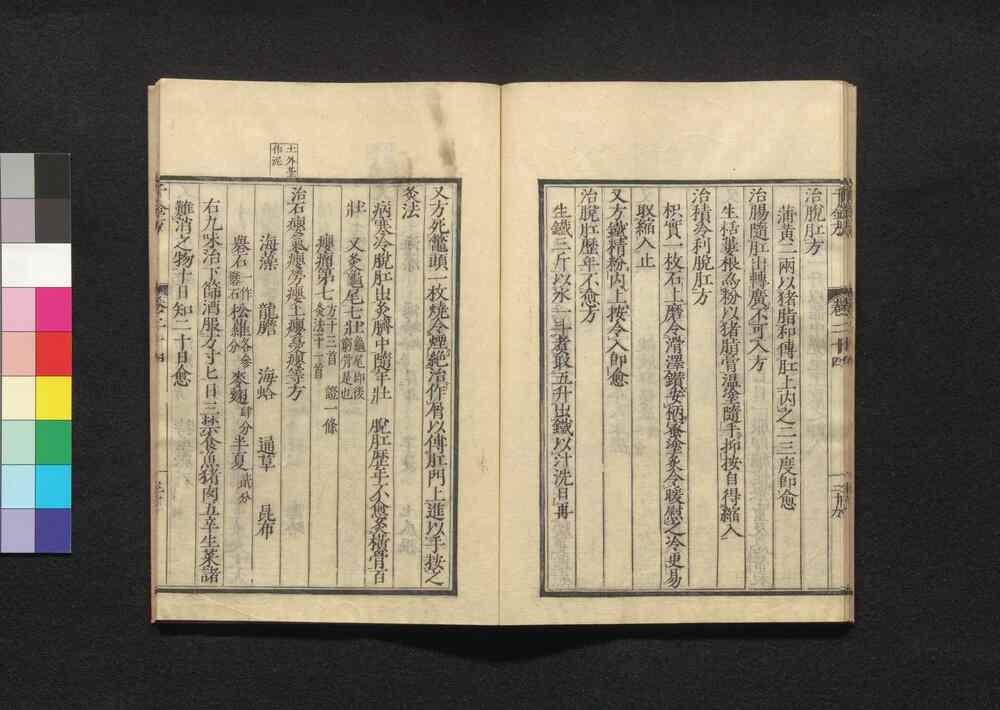 治脫肛方
蒲黃二兩以猪脂和傅肛上內之二三度卽愈
治腸隨肛出轉廣不可入方
生栝蔞根爲粉以猪脂膏溫塗隨手抑按自得縮入
治積冷利脫肛方
枳實一枚石上磨令滑澤鑽安柄蜜塗炙令暖熨之冷更易
取縮入止
又方鐵精粉內上按令入卽愈
治脫肛歷年不愈方
生鐵三斤以水一斗煮取五升出鐵以汁洗日再
又方死鼈頭一枚燒令煙絕治作屑以傅肛門上進以手按之
灸法
病寒冷脫肛出灸臍中隨年壯 脫肛歷年不愈灸橫骨百
壯 又灸龜尾七壯龜尾卽後窮骨是也
癭瘤第七方十三首 證一條 灸法十一首
治石癭氣癭勞癭土癭憂癭等方
海藻 龍膽 海蛤 通草 昆布
礜石一作礬石 松蘿各參分 麥麴肆分 半夏貳分
右九味治下篩酒服方寸匕日三禁食魚猪肉五辛生菜諸
難消之物十日知二十日愈
土外臺作泥
卷二十四